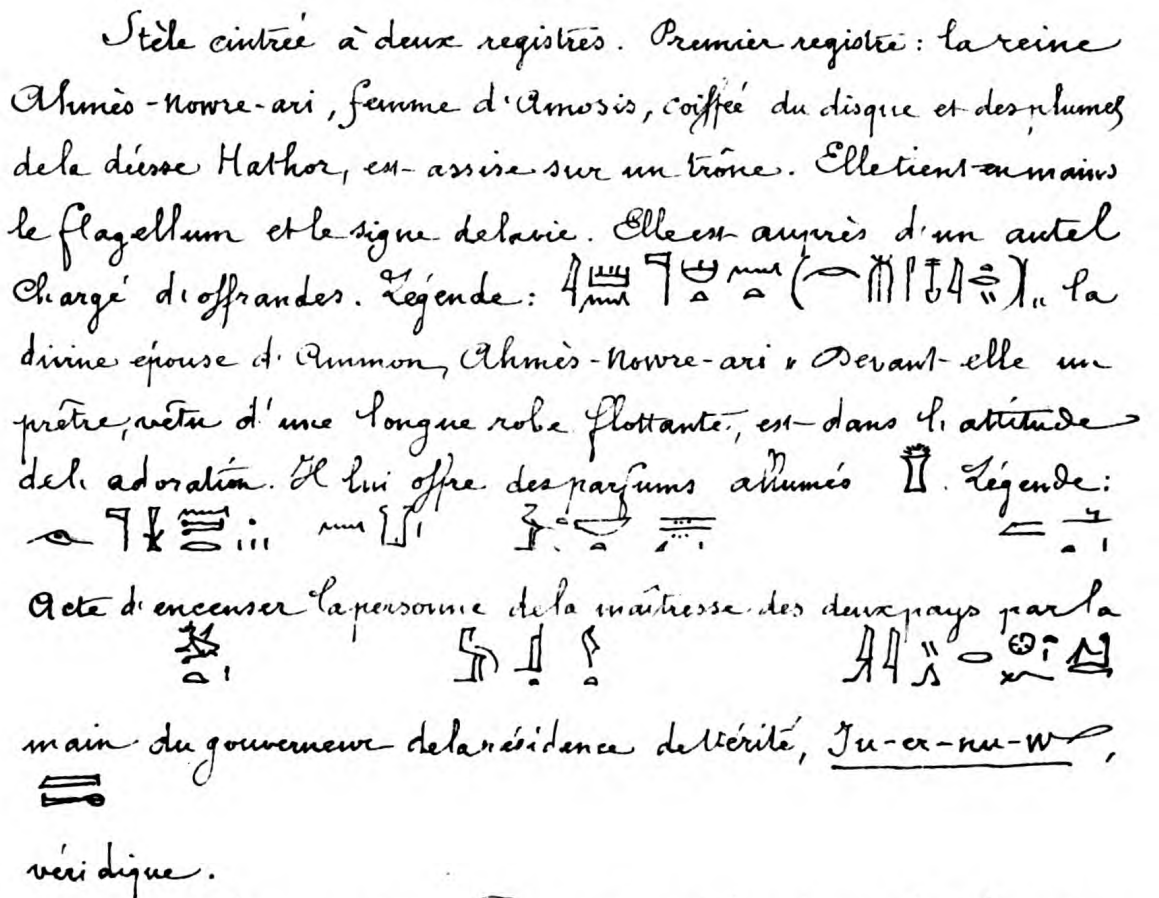 Stèle cintrée à deux registres. Premier registre : la reine
Ahmès-Nowre-ari, femme d'Amosis, coiffée du disque et des plumes
de la déesse Hathor, est assise sur un trône. Elle tient en mains
le flagellum et le signe de la vie. Elle est auprès d'un autel
chargé d'offrandes. Légende : " la
divine épouse d'Ammon, Ahmès-Nowre-ari " Devant elle un
prêtre, vêtu d'une longue robe flottante, est dans l'attitude
de l'adoration. Il lui offre des parfums allumés . Légende :
Acte d'encenser la personne de la maîtresse des deux pays par la
main du gouverneur de la résidence de Vérité,
véridique.